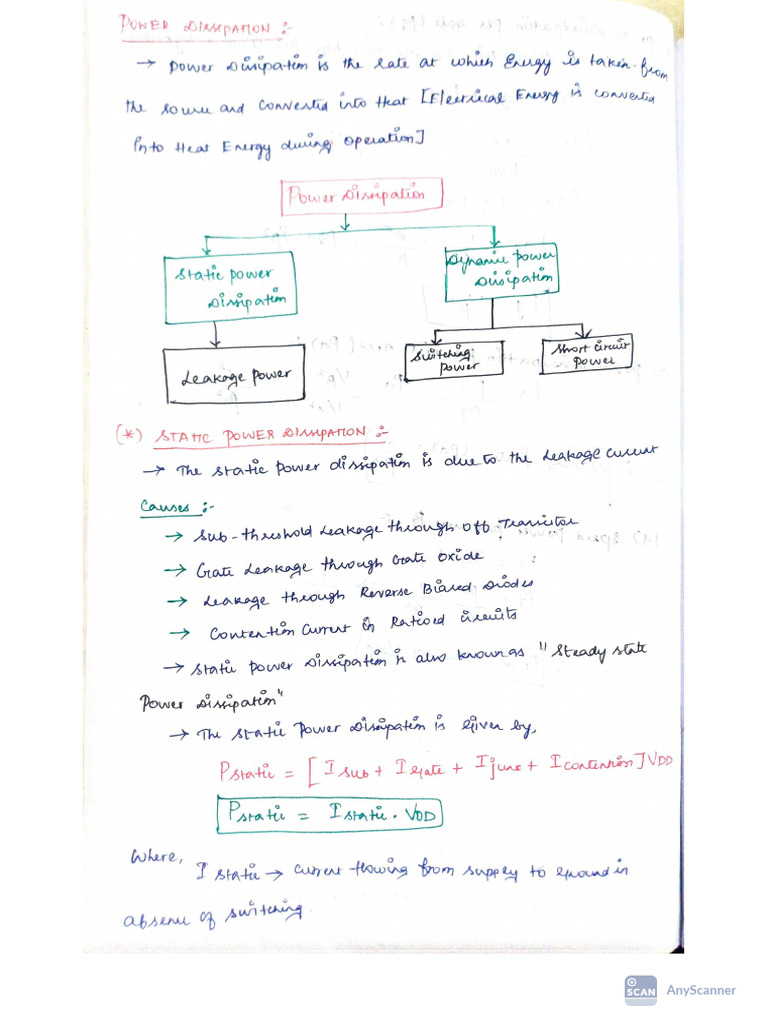 POWER DISSIPATION :-
→ Power Dissipation is the rate at which Energy is taken from
the source and converted into Heat [Electrical Energy is converted
into Heat Energy during operation]
Power Dissipation
Static power
Dissipation
Dynamic power
Dissipation
Leakage power
Switching
power
Short circuit
power
(*) STATIC POWER DISSIPATION :-
→ The static power dissipation is due to the Leakage current
Causes :-
→ Sub-threshold Leakage through off Transistor
→ Gate Leakage through Gate oxide
→ Leakage through Reverse Biased Diodes
→ Contention Current in Ratioed circuits
→ Static power Dissipation is also known as "Steady state
Power Dissipation"
→ The static Power Dissipation is Given by,
Pstatic = [Isub + Igate + Ijunc + Icontention] VDD
Pstatic = Istatic . VDD
Where,
Istatic → current flowing from supply to ground in
absence of switching.
SCAN AnyScanner